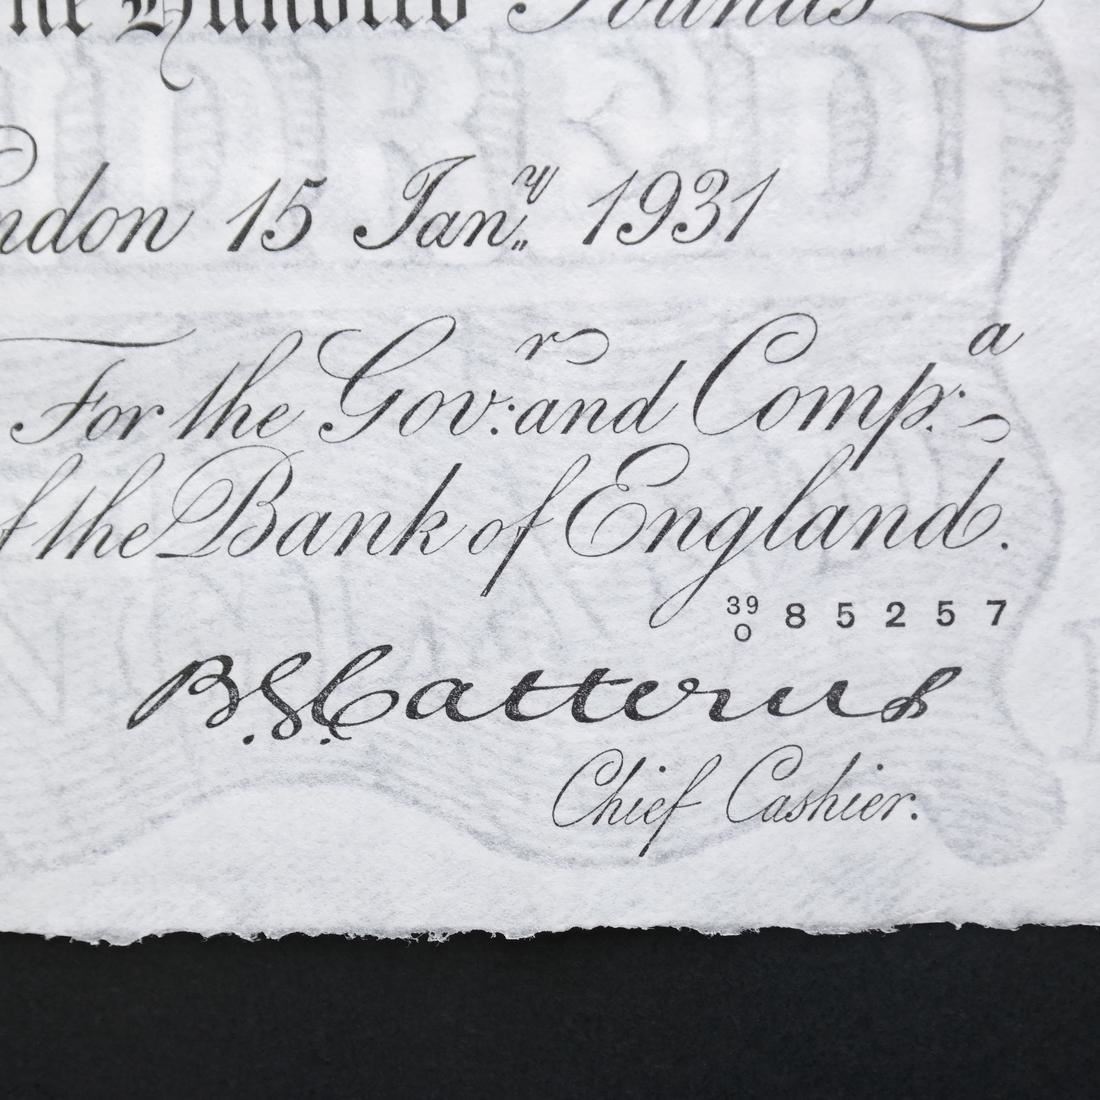 Hundred Pounds
London 15 Jan.y 1931
For the Gov:r and Comp:a
of the Bank of England.
39
0 85257
B.G.Catterns
Chief Cashier.